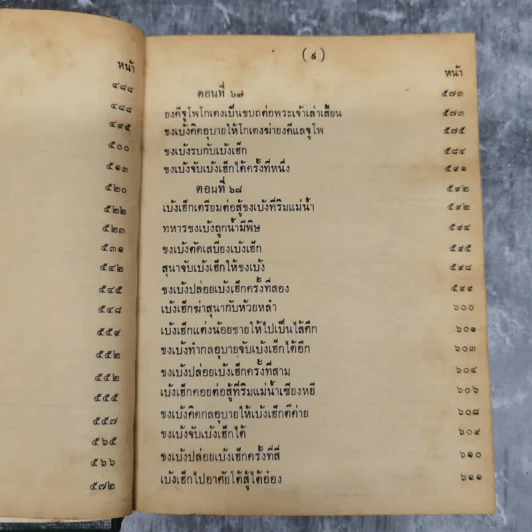 หน้า
๔๘๘
๔๘๘
๔๙๕
๕๐๐
๕๑๓
๕๒๐
๕๒๒
๕๒๓
๕๓๑
๕๔๒
๕๔๕
๕๔๘
๕๕๒
๕๕๕
๕๕๗
๕๖๕
๕๖๖
๕๗๒
(๙)
หน้า
ตอนที่ ๖๗ ๕๗๓
ยงคีจูโพโกเตงเป็นขบถต่อพระเจ้าเล่าเสี้ยน ๕๗๓
ขงเบ้งคิดอุบายให้โกเตงฆ่ายงคีแลจูโพ ๕๗๕
ขงเบ้งรบกับเบ้งเฮ็ก ๕๘๔
ขงเบ้งจับเบ้งเฮ็กได้ครั้งที่หนึ่ง ๕๙๑
ตอนที่ ๖๘ ๕๙๒
เบ้งเฮ็กเตรียมต่อสู้ขงเบ้งที่ริมแม่น้ำ ๕๙๒
ทหารขงเบ้งถูกน้ำมีพิษ ๕๙๔
ขงเบ้งตัดเสบียงเบ้งเฮ็ก ๕๙๕
สุนาจับเบ้งเฮ็กให้ขงเบ้ง ๕๙๘
ขงเบ้งปล่อยเบ้งเฮ็กครั้งที่สอง ๕๙๙
เบ้งเฮ็กฆ่าสุนากับห้วยหลำ ๖๐๐
เบ้งเฮ็กแต่งน้อยชายให้ไปเป็นไส้ศึก ๖๐๑
ขงเบ้งทำกลอุบายจับเบ้งเฮ็กได้อีก ๖๐๓
ขงเบ้งปล่อยเบ้งเฮ็กครั้งที่สาม ๖๐๔
เบ้งเฮ็กคอยต่อสู้ที่ริมแม่น้ำเซียงหยี ๖๐๖
ขงเบ้งคิดกลอุบายให้เบ้งเฮ็กตีค่าย ๖๐๘
ขงเบ้งจับเบ้งเฮ็กได้ ๖๐๙
ขงเบ้งปล่อยเบ้งเฮ็กครั้งที่สี่ ๖๑๐
เบ้งเฮ็กไปอาศัยโต้สู้ไต้อ๋อง ๖๑๑